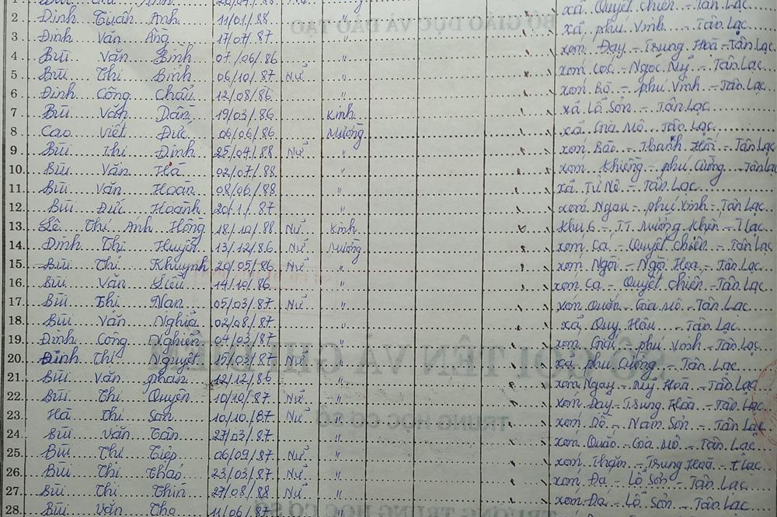 2. Đinh Tuấn Anh 11/01/88 " xã Phú Vinh - Tân Lạc
3. Đinh Văn 17/07/87 " xóm Đay - Trung Hoà - Tân Lạc
4. Bùi Văn Bình 07/06/86 " xóm Cóc - Ngọc Mỹ - Tân Lạc
5. Bùi Thị Bình 06/10/87 Nữ " phú Vinh - Tân Lạc
6. Đinh Công Chẩu 12/08/86 " xã Lỗ Sơn - Tân Lạc
7. Bùi Văn Dân 19/03/86 Kinh
8. Cao Viết Đức 06/06/86 Mường
9. Bùi Thị Định 25/04/88 Nữ " xóm Bào - Thanh Hối - Tân Lạc
10. Bùi Văn Hà 02/07/88 " xóm Khiềng - phú Cường - Tân Lạc
11. Bùi Văn Hoan 08/06/88 " xã Tử Nê - Tân Lạc
12. Bùi Đức Hoành 20/1/87 " phú Vinh - Tân Lạc
13. Lê Thị Ánh Hồng 18/10/88 Nữ Kinh Khu 6 - TT. Mường Khến - T Lạc
14. Đinh Thị Huyền 13/12/86 Nữ Mường xóm Cá - Quyết chiến - Tân Lạc
15. Bùi Thị Khuỳnh 20/05/86 Nữ " xóm Ngòi - Ngòi Hoa - Tân Lạc
16. Bùi Văn 14/10/86 " xóm Cá - Quyết chiến - Tân Lạc
17. Bùi Thị Nan 05/03/87 Nữ " Tân Lạc
18. Bùi Văn Nghĩa 02/08/87 " xã Quy Hậu - Tân Lạc
19. Đinh Công Nghiên 04/03/87 " phú Vinh - Tân Lạc
20. Đinh Thị Nguyệt 15/03/87 Nữ " xã Phú Cường - Tân Lạc
21. Bùi Văn phán 12/12/86 " Tân Lạc
22. Bùi Thị Quyên 10/10/87 Nữ " xóm Đay - Trung Hoà - Tân Lạc
23. Hà Thị Son 10/10/87 Nữ " Nam Sơn - Tân Lạc
24. Bùi Văn Tân 27/03/87 " Tân Lạc
25. Bùi Thị Tiếp 06/09/87 Nữ " xóm Thăm - Trung Hoà - T Lạc
26. Bùi Thị Thảo 23/03/87 Nữ " xóm Đá - Lỗ Sơn - Tân Lạc
27. Bùi Thị Thìn 27/08/88 Nữ " xóm Đá - Lỗ Sơn - Tân Lạc
28. Bùi Văn Thọ 11/06/87 "